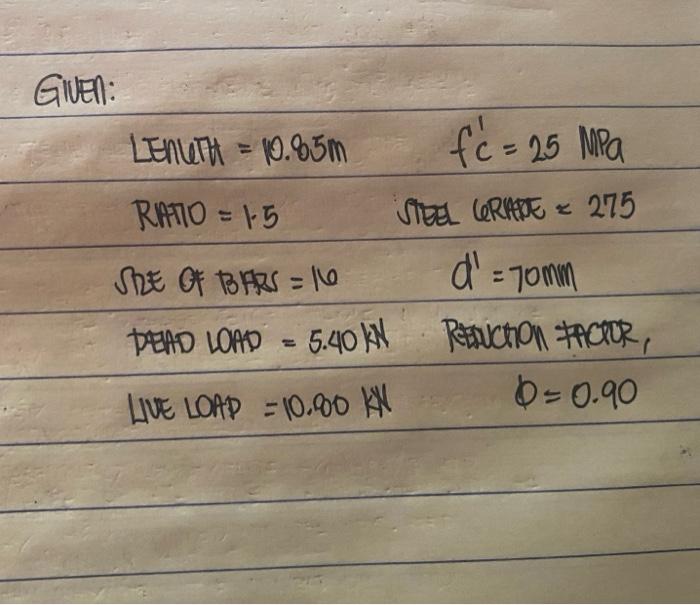 GIVEN:
LENGTH = 10.85m f'c = 25 MPa
RATIO = 1.5 STEEL GRADE = 275
SIZE OF BARS = 16 d' = 70mm
DEAD LOAD = 5.40 KN REDUCTION FACTOR,
LIVE LOAD = 10.80 KN Φ = 0.90